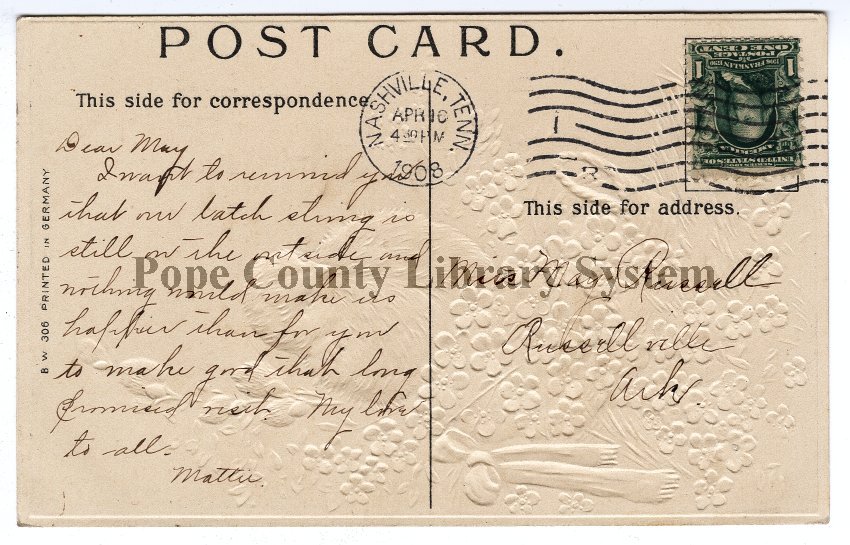 POST CARD.
This side for correspondence.
NASHVILLE, TENN.
APR 16
4 30 PM
1908
1
R
ONE CENT
POSTAGE
1 1
UNITED STATES OF
AMERICA
This side for address.
Dear May
I want to remind you
that our latch string is
still on the outside and
nothing would make us
happier than for you
to make good that long
promised visit. My love
to all.
Mattie.
Miss May Russell
Russellville
Ark.
B W 306 PRINTED IN GERMANY
Pope County Library System